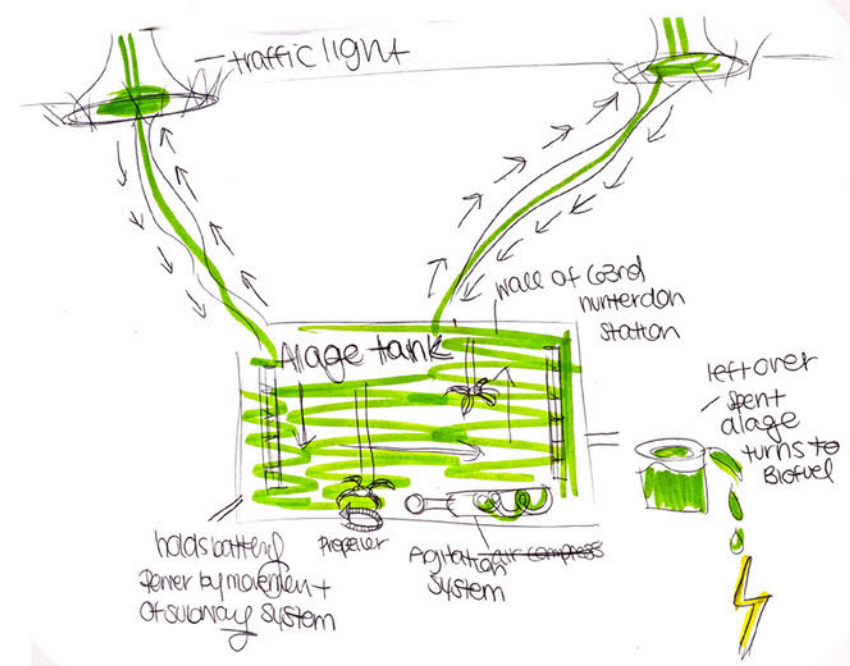 traffic light
wall of 63rd
hunterdon
station
Alage tank
left over
spent
alage
turns to
Biofuel
holds battery
power by movement
of subway system
Propeller
Agitation air compress
system